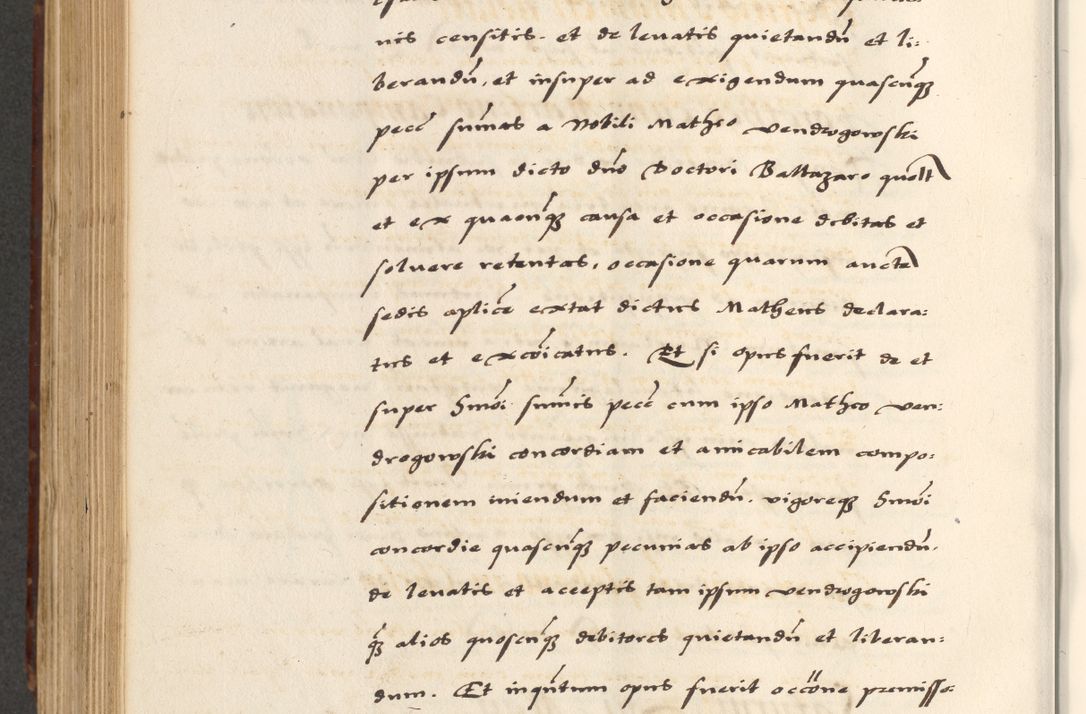 nis censitis. et de levatis quietandū et li:
berandū, et insuper ad exigendum quascūqꝫ
pecē sūmas a Nobili Matheo Vendrogowski
per ipsum dicto dūo Doctori Baltazaro quolt
et ex quacūqꝫ causa et occasione debitas et
solvere retentas, occasione quarum aucte
sedis aplicē extat dictus Matheus declara:
tus et excōicatus. Et si opus fuerit de et
super hmōi sūmis pecē cum ipso Matheo Ven:
drogowski concordiam et amicabilem compo:
sitionem iniendum et faciendū. vigoreqꝫ hmōi
concordie quascūqꝫ pecunias ab ipso accipiendū.
de levatis et acceptis tam ipsum Vendrogowski
qꝫ alios quoscūqꝫ debitores quietandū et liberan:
dum. Et inqūtum opus fuerit occōne premisso: